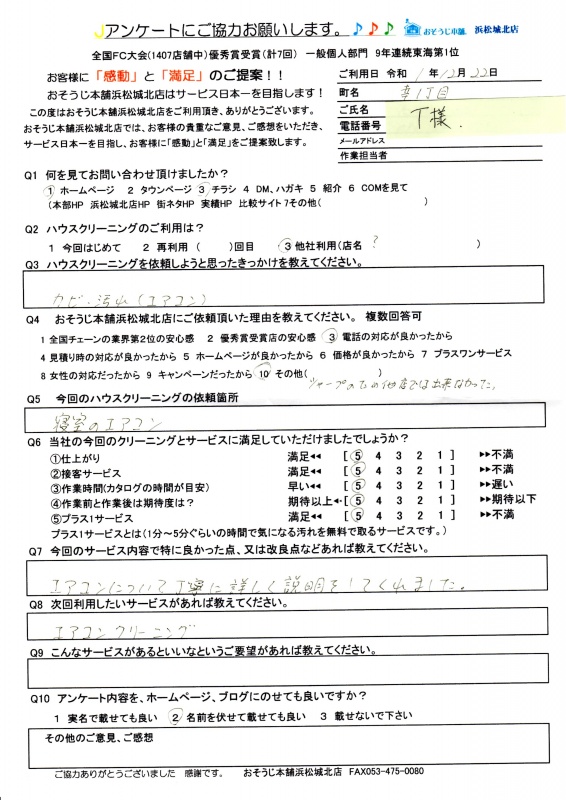 Jアンケートにご協力お願いします。♪ ♪ ♪ おそうじ本舗 浜松城北店
全国FC大会(1407店舗中)優秀賞受賞(計7回) 一般個人部門 9年連続東海第1位
お客様に「感動」と「満足」のご提案!!
ご利用日 令和 1年12月22日
おそうじ本舗浜松城北店はサービス日本一を目指します!
町名 幸1丁目
この度はおそうじ本舗浜松城北店をご利用頂き、ありがとうございます。
ご氏名 T様.
おそうじ本舗浜松城北店では、お客様の貴重なご意見、ご感想をいただき、
電話番号
サービス日本一を目指し、お客様に「感動」と「満足」をご提案致します。
メールアドレス
作業担当者
Q1 何を見てお問い合わせ頂けましたか?
1 ホームページ 2 タウンページ 3 チラシ 4 DM、ハガキ 5 紹介 6 COMを見て
(本部HP 浜松城北店HP 街ネタHP 実績HP 比較サイト 7その他( )
Q2 ハウスクリーニングのご利用は?
1 今回はじめて 2 再利用 ( )回目 3 他社利用(店名 ? )
Q3 ハウスクリーニングを依頼しようと思ったきっかけを教えてください。
カビ・汚れ(エアコン)
Q4 おそうじ本舗浜松城北店にご依頼頂いた理由を教えてください。 複数回答可
1 全国チェーンの業界第2位の安心感 2 優秀賞受賞店の安心感 3 電話の対応が良かったから
4 見積り時の対応が良かったから 5 ホームページが良かったから 6 価格が良かったから 7 プラスワンサービス
8 女性の対応だったから 9 キャンペーンだったから 10 その他( )
シャープのため他店では出来なかった。
Q5 今回のハウスクリーニングの依頼箇所
寝室のエアコン
Q6 当社の今回のクリーニングとサービスに満足していただけましたでしょうか?
①仕上がり 満足◂◂ [ 5 4 3 2 1 ] ▸▸不満
②接客サービス 満足◂◂ [ 5 4 3 2 1 ] ▸▸不満
③作業時間(カタログの時間が目安) 早い◂◂ [ 5 4 3 2 1 ] ▸▸遅い
④作業前と作業後は期待度は? 期待以上◂ [ 5 4 3 2 1 ] ▸▸期待以下
⑤プラス1サービス 満足◂◂ [ 5 4 3 2 1 ] ▸▸不満
プラス1サービスとは(1分~5分ぐらいの時間で気になる汚れを無料で取るサービスです。)
Q7 今回のサービス内容で特に良かった点、又は改良点などあれば教えてください。
エアコンについて丁寧に詳しく説明をしてくれました。
Q8 次回利用したいサービスがあれば教えてください。
エアコンクリーニング
Q9 こんなサービスがあるといいなというご要望があれば教えてください。
Q10 アンケート内容を、ホームページ、ブログにのせても良いですか?
1 実名で載せても良い 2 名前を伏せて載せても良い 3 載せないで下さい
その他のご意見、ご感想
ご協力ありがとうございました 感謝です。 おそうじ本舗浜松城北店 FAX053-475-0080